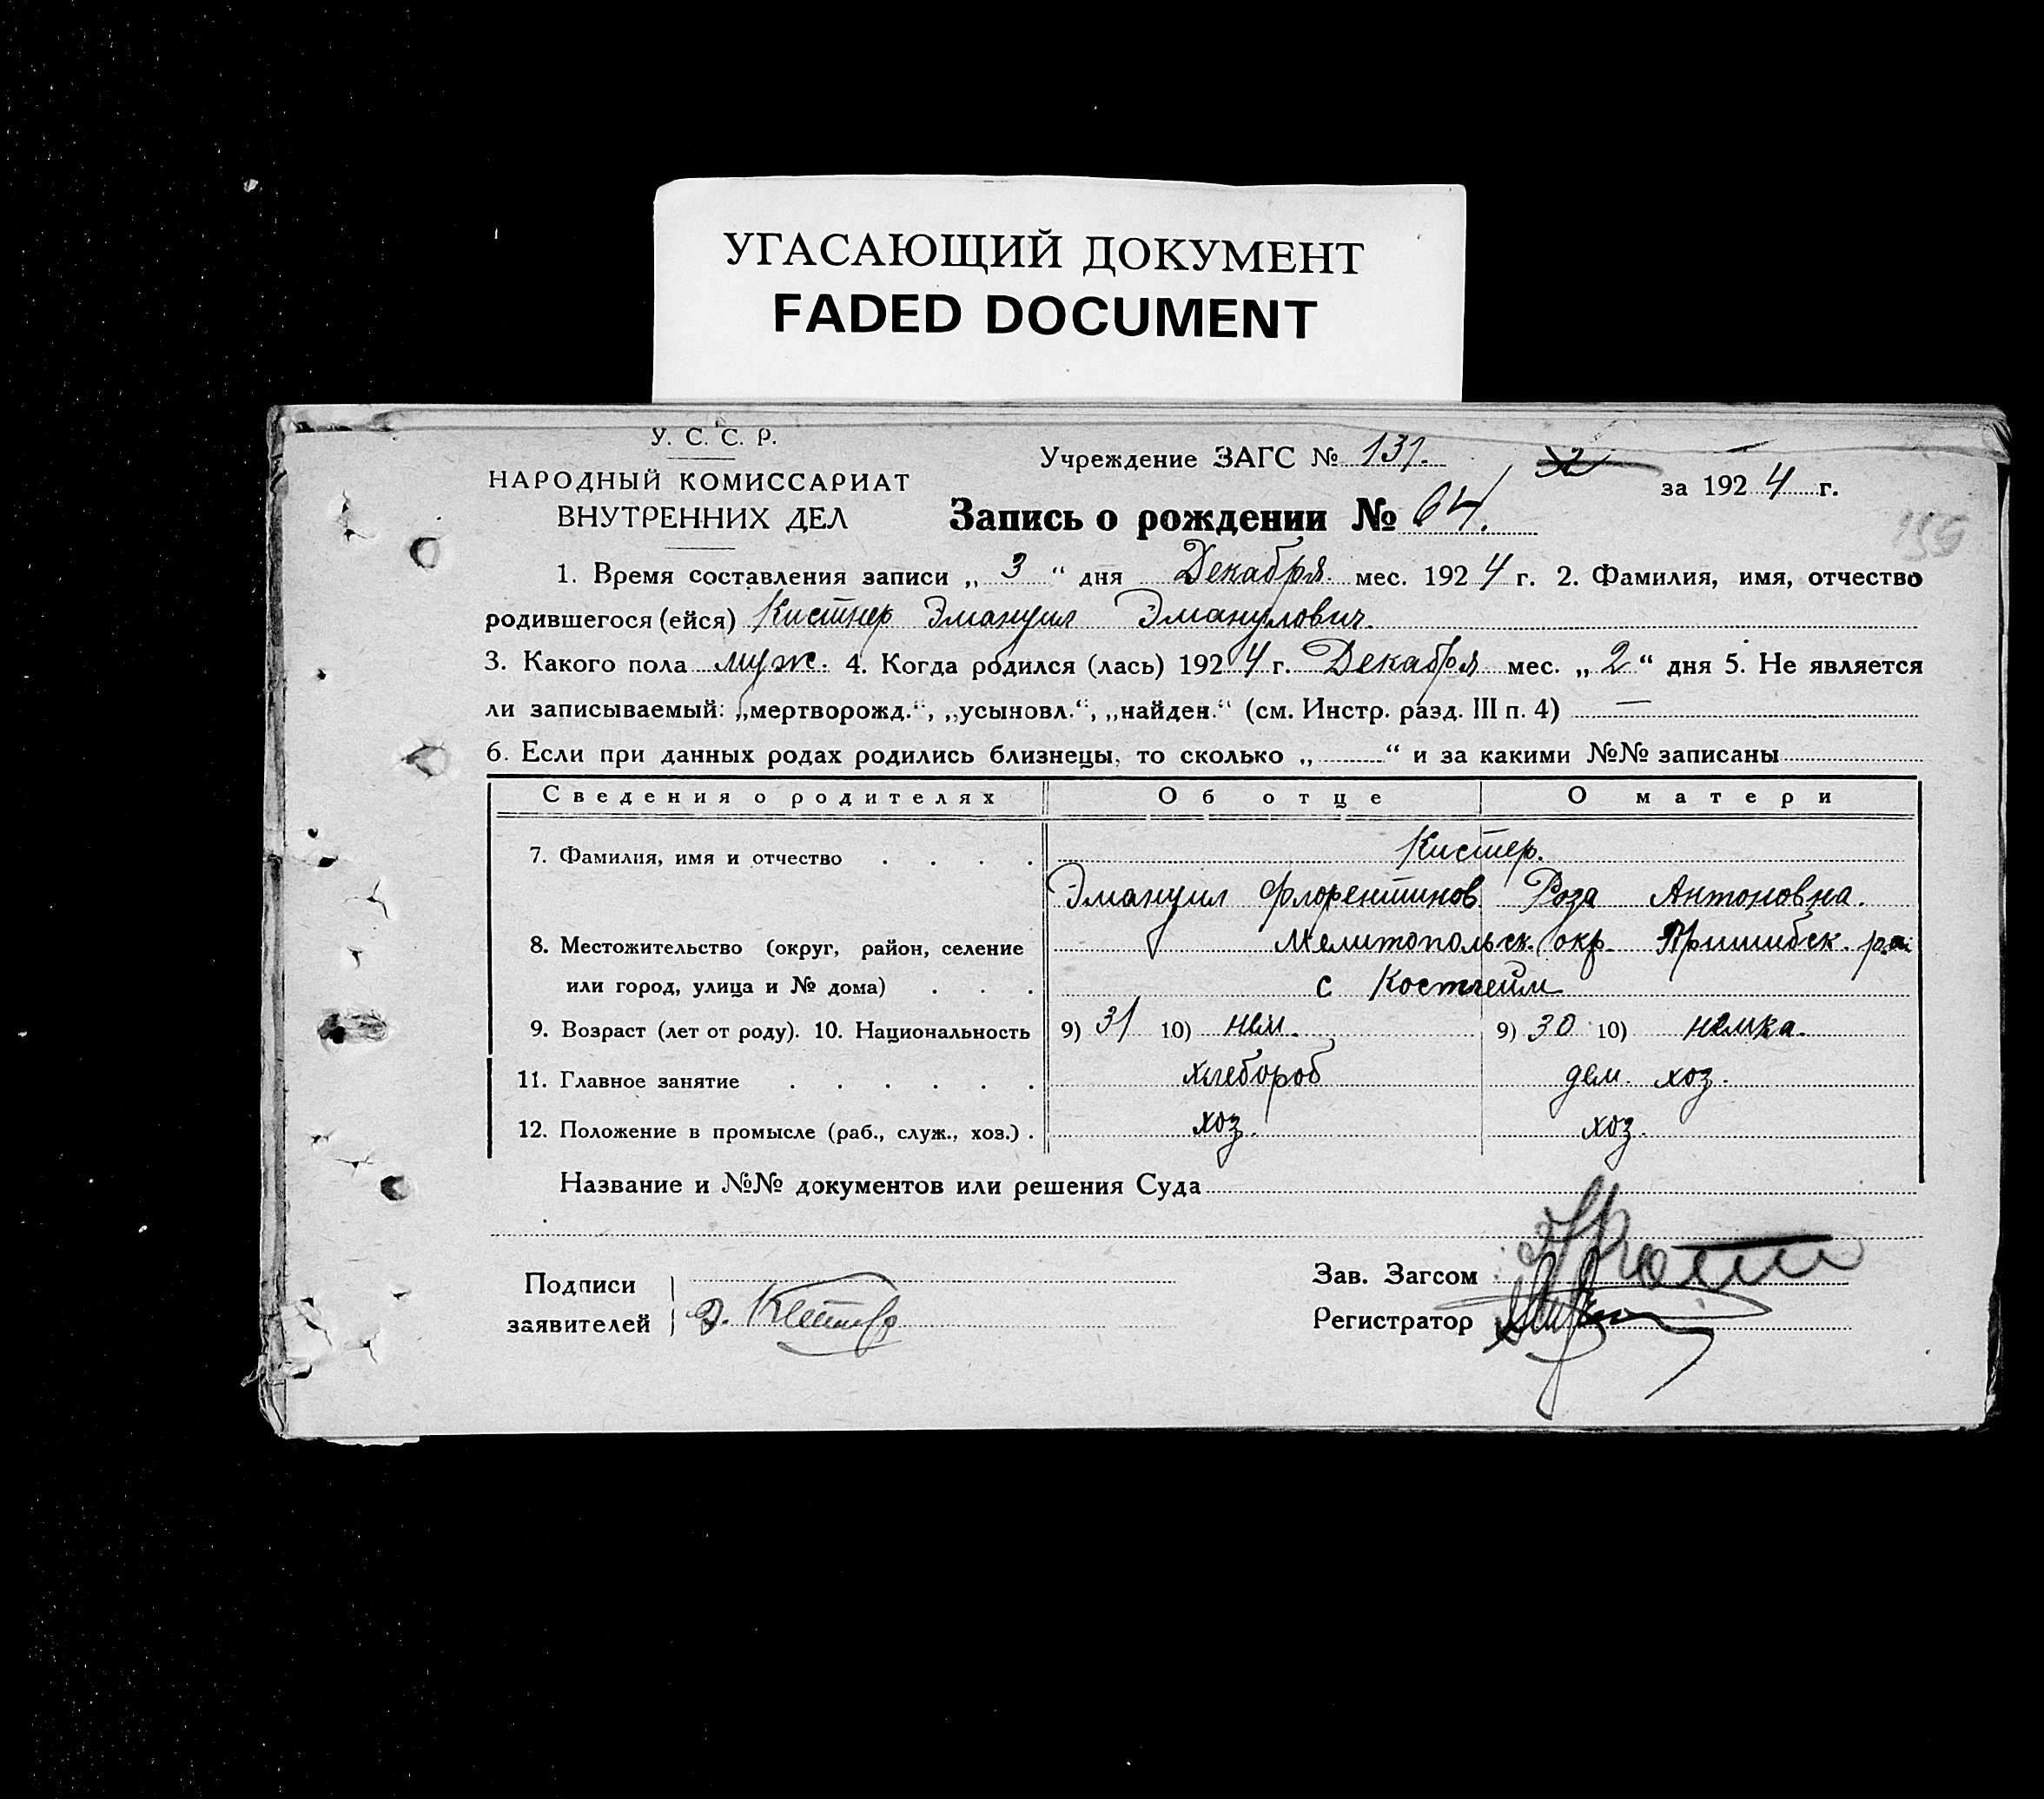 УГАСАЮЩИЙ ДОКУМЕНТ
FADED DOCUMENT
У. С. С. Р.
НАРОДНЫЙ КОМИССАРИАТ
ВНУТРЕННИХ ДЕЛ
Учреждение ЗАГС № 131.
за 1924 г.
Запись о рождении № 64.
159
1. Время составления записи „ 3 “ дня Декабря мес. 1924 г. 2. Фамилия, имя, отчество
родившегося (ейся) Кистнер Эмануил Эманулович.
3. Какого пола муж. 4. Когда родился (лась) 1924 г. Декабря мес. „ 2 “ дня 5. Не является
ли записываемый: „мертворожд.“, „усыновл.“, „найден.“ (см. Инстр. разд. III п. 4) —
6. Если при данных родах родились близнецы, то сколько „ “ и за какими №№ записаны
Сведения о родителях Об отце О матери
7. Фамилия, имя и отчество . . . . Кистнер.
Эмануил Флорентинов Роза Антоновна.
8. Местожительство (округ, район, селение Мелитопольск. окр. Пришибск. рай
или город, улица и № дома) . . . с Костгейм
9. Возраст (лет от роду). 10. Национальность 9) 31 10) нем. 9) 30 10) немка.
11. Главное занятие . . . . . . хлебороб дом. хоз.
12. Положение в промысле (раб., служ., хоз.) . хоз. хоз.
Название и №№ документов или решения Суда
Подписи
заявителей Э. Кистнер
Зав. Загсом
Регистратор